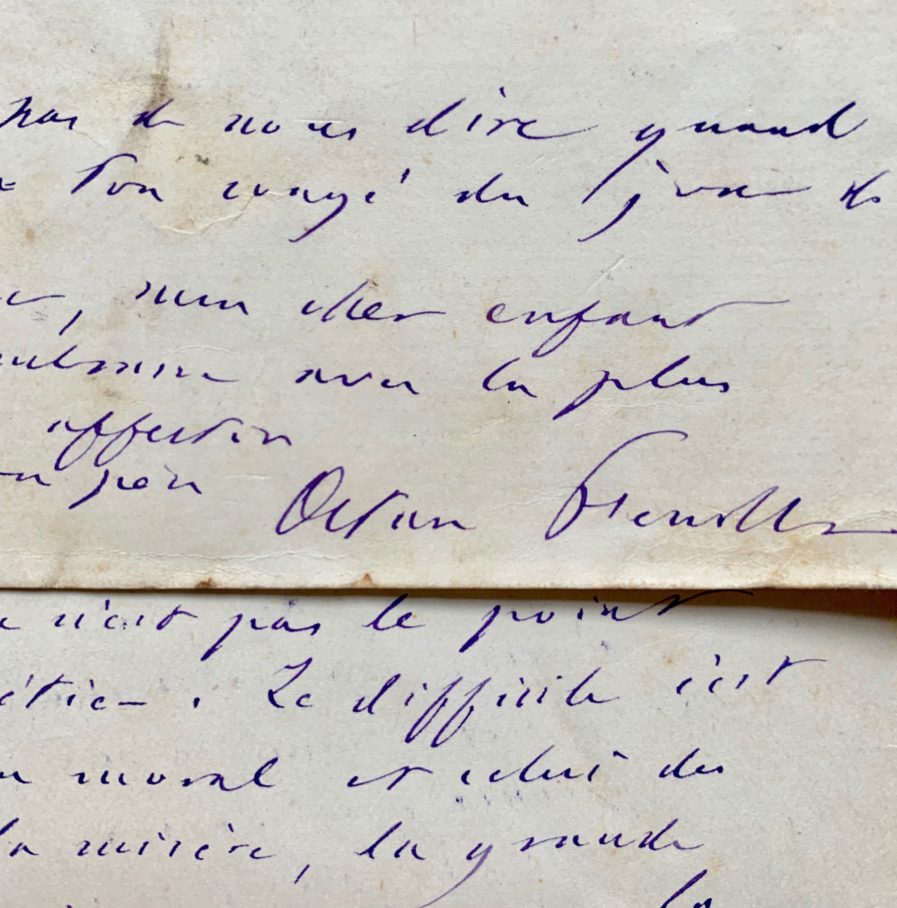 pas de nous dire quand
ton congé du jour de
, mon cher enfant
avec la plus
affection
ton père Octave
n'est pas le point
. Le difficile c'est
moral et celui des
la misère, la grande